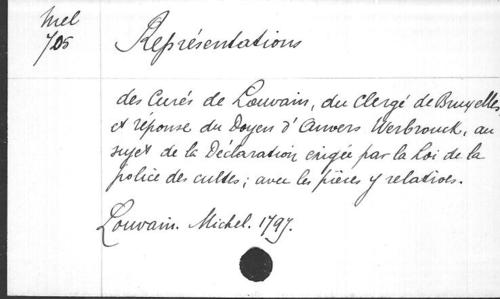 Mel
705
Représentations
des Curés de Louvain, du Clergé de Bruxelles,
et réponse du Doyen d'Anvers Werbrouck, au
sujet de la Déclaration exigée par la Loi de la
police des cultes; avec les pièces y relatives.
Louvain. Michel. 1797.